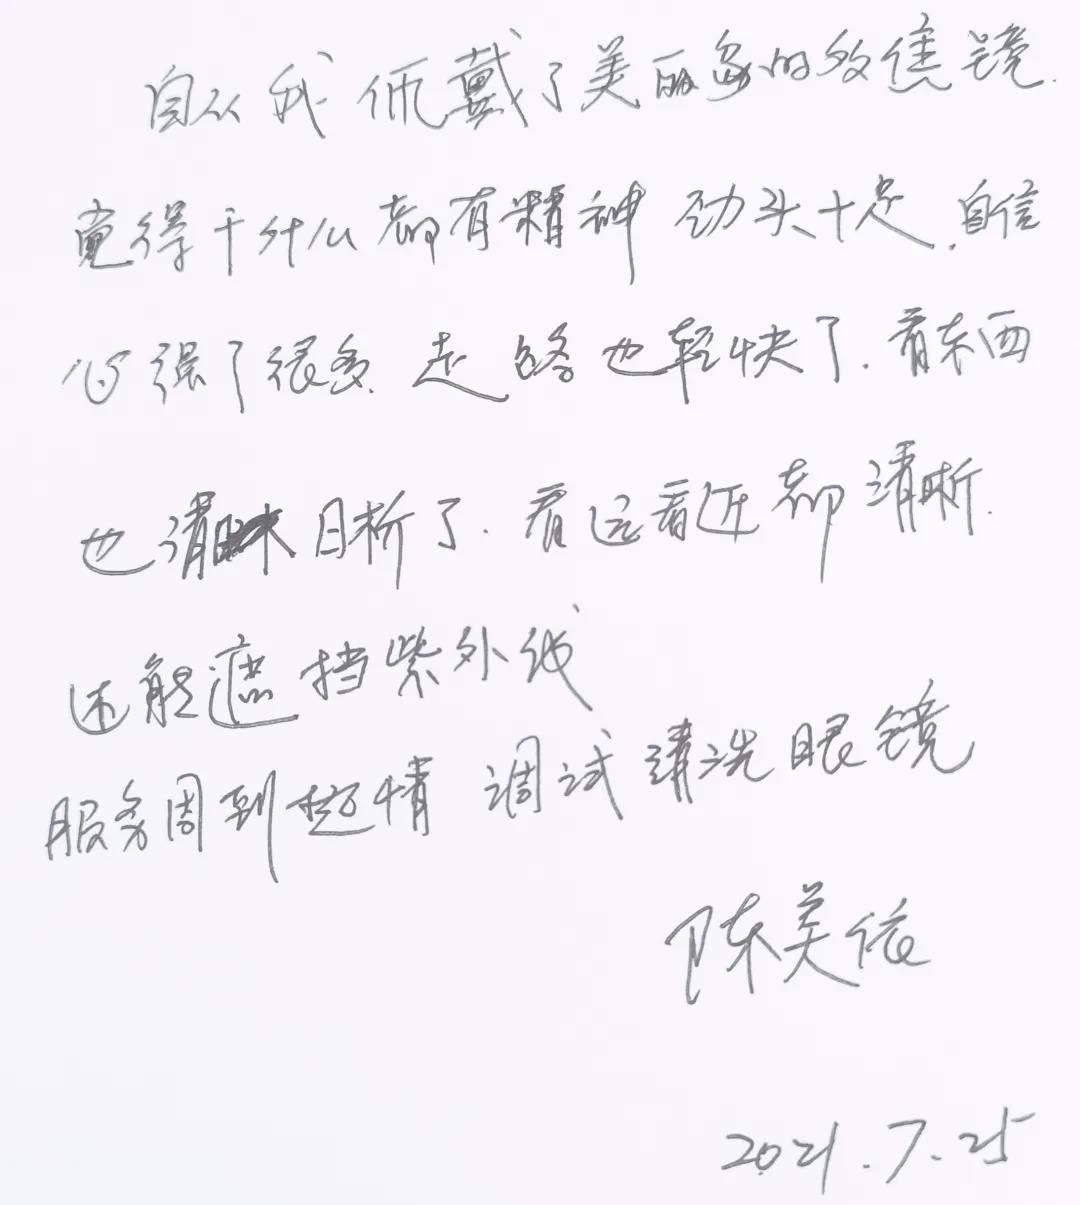 自从我佩戴了美丽岛的效焦镜.
觉得干什么都有精神 劲头十足.自信
心强了很多.走路也轻快了.看东西
也清晰了.看远看近都清晰.
还能遮挡紫外线
服务周到热情 调试清洗眼镜
陈美依
2021.7.25